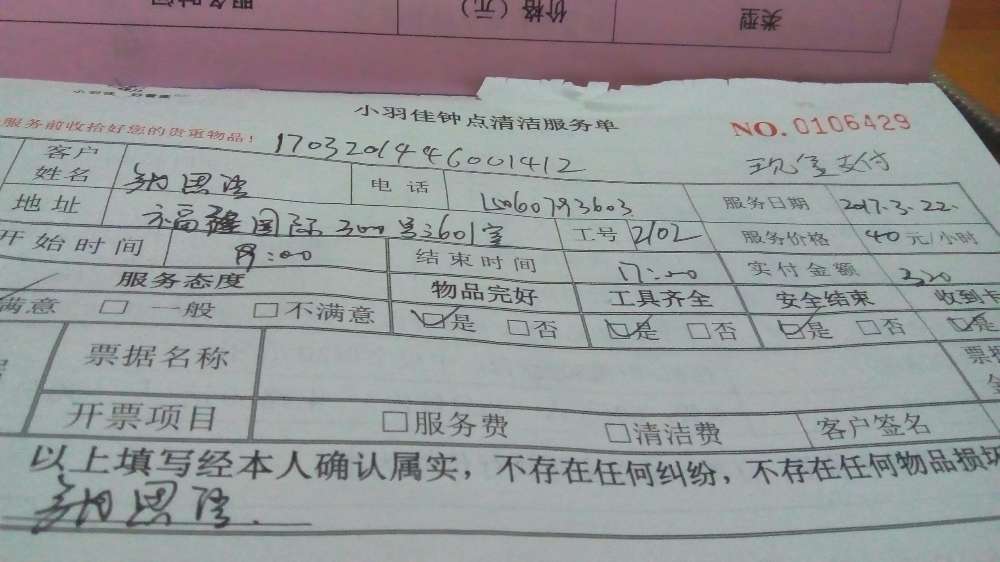 服务时间 价格（元） 类型
小羽佳钟点清洁服务单
服务前收拾好您的贵重物品！ NO. 0106429
17032014446001412 现金支付
客户姓名 电话 服务日期 2017.3.22.
地址 福隆国际300号3601室 工号 2102 服务价格 40元/小时
开始时间 9:00 结束时间 17:00 实付金额 320
服务态度 物品完好 工具齐全 安全结束 收到卡
满意 □ 一般 □ 不满意 ☑是 □否 ☑是 □否 ☑是 □否 ☑是
票据名称
开票项目 □服务费 □清洁费 客户签名
以上填写经本人确认属实，不存在任何纠纷，不存在任何物品损坏